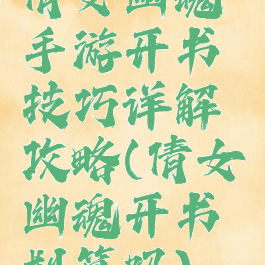 倩女幽魂
手游开书
技巧详解
攻略(倩女
幽魂开书
划算吗)